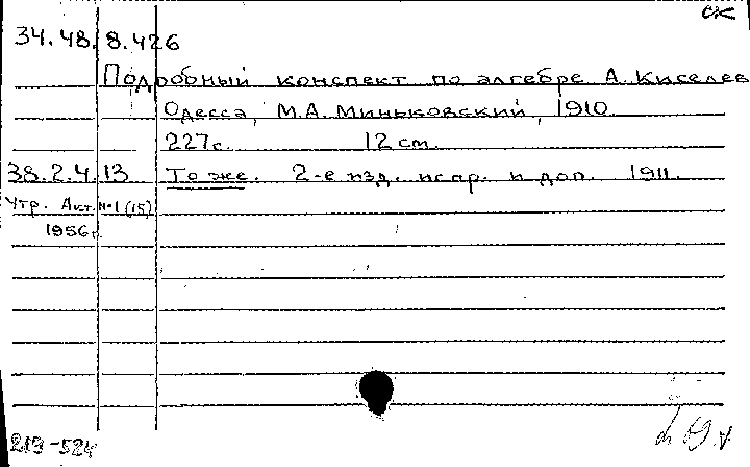 ск
34.48.8.426
Подробный конспект по алгебре А. Киселев
Одесса, М.А. Миньковский, 1910.
227с. 12 см.
38.2.4.13 То же. 2-е изд. испр. и доп. 1911.
Утр. Акт. №1 (15)
1956г.
219-524